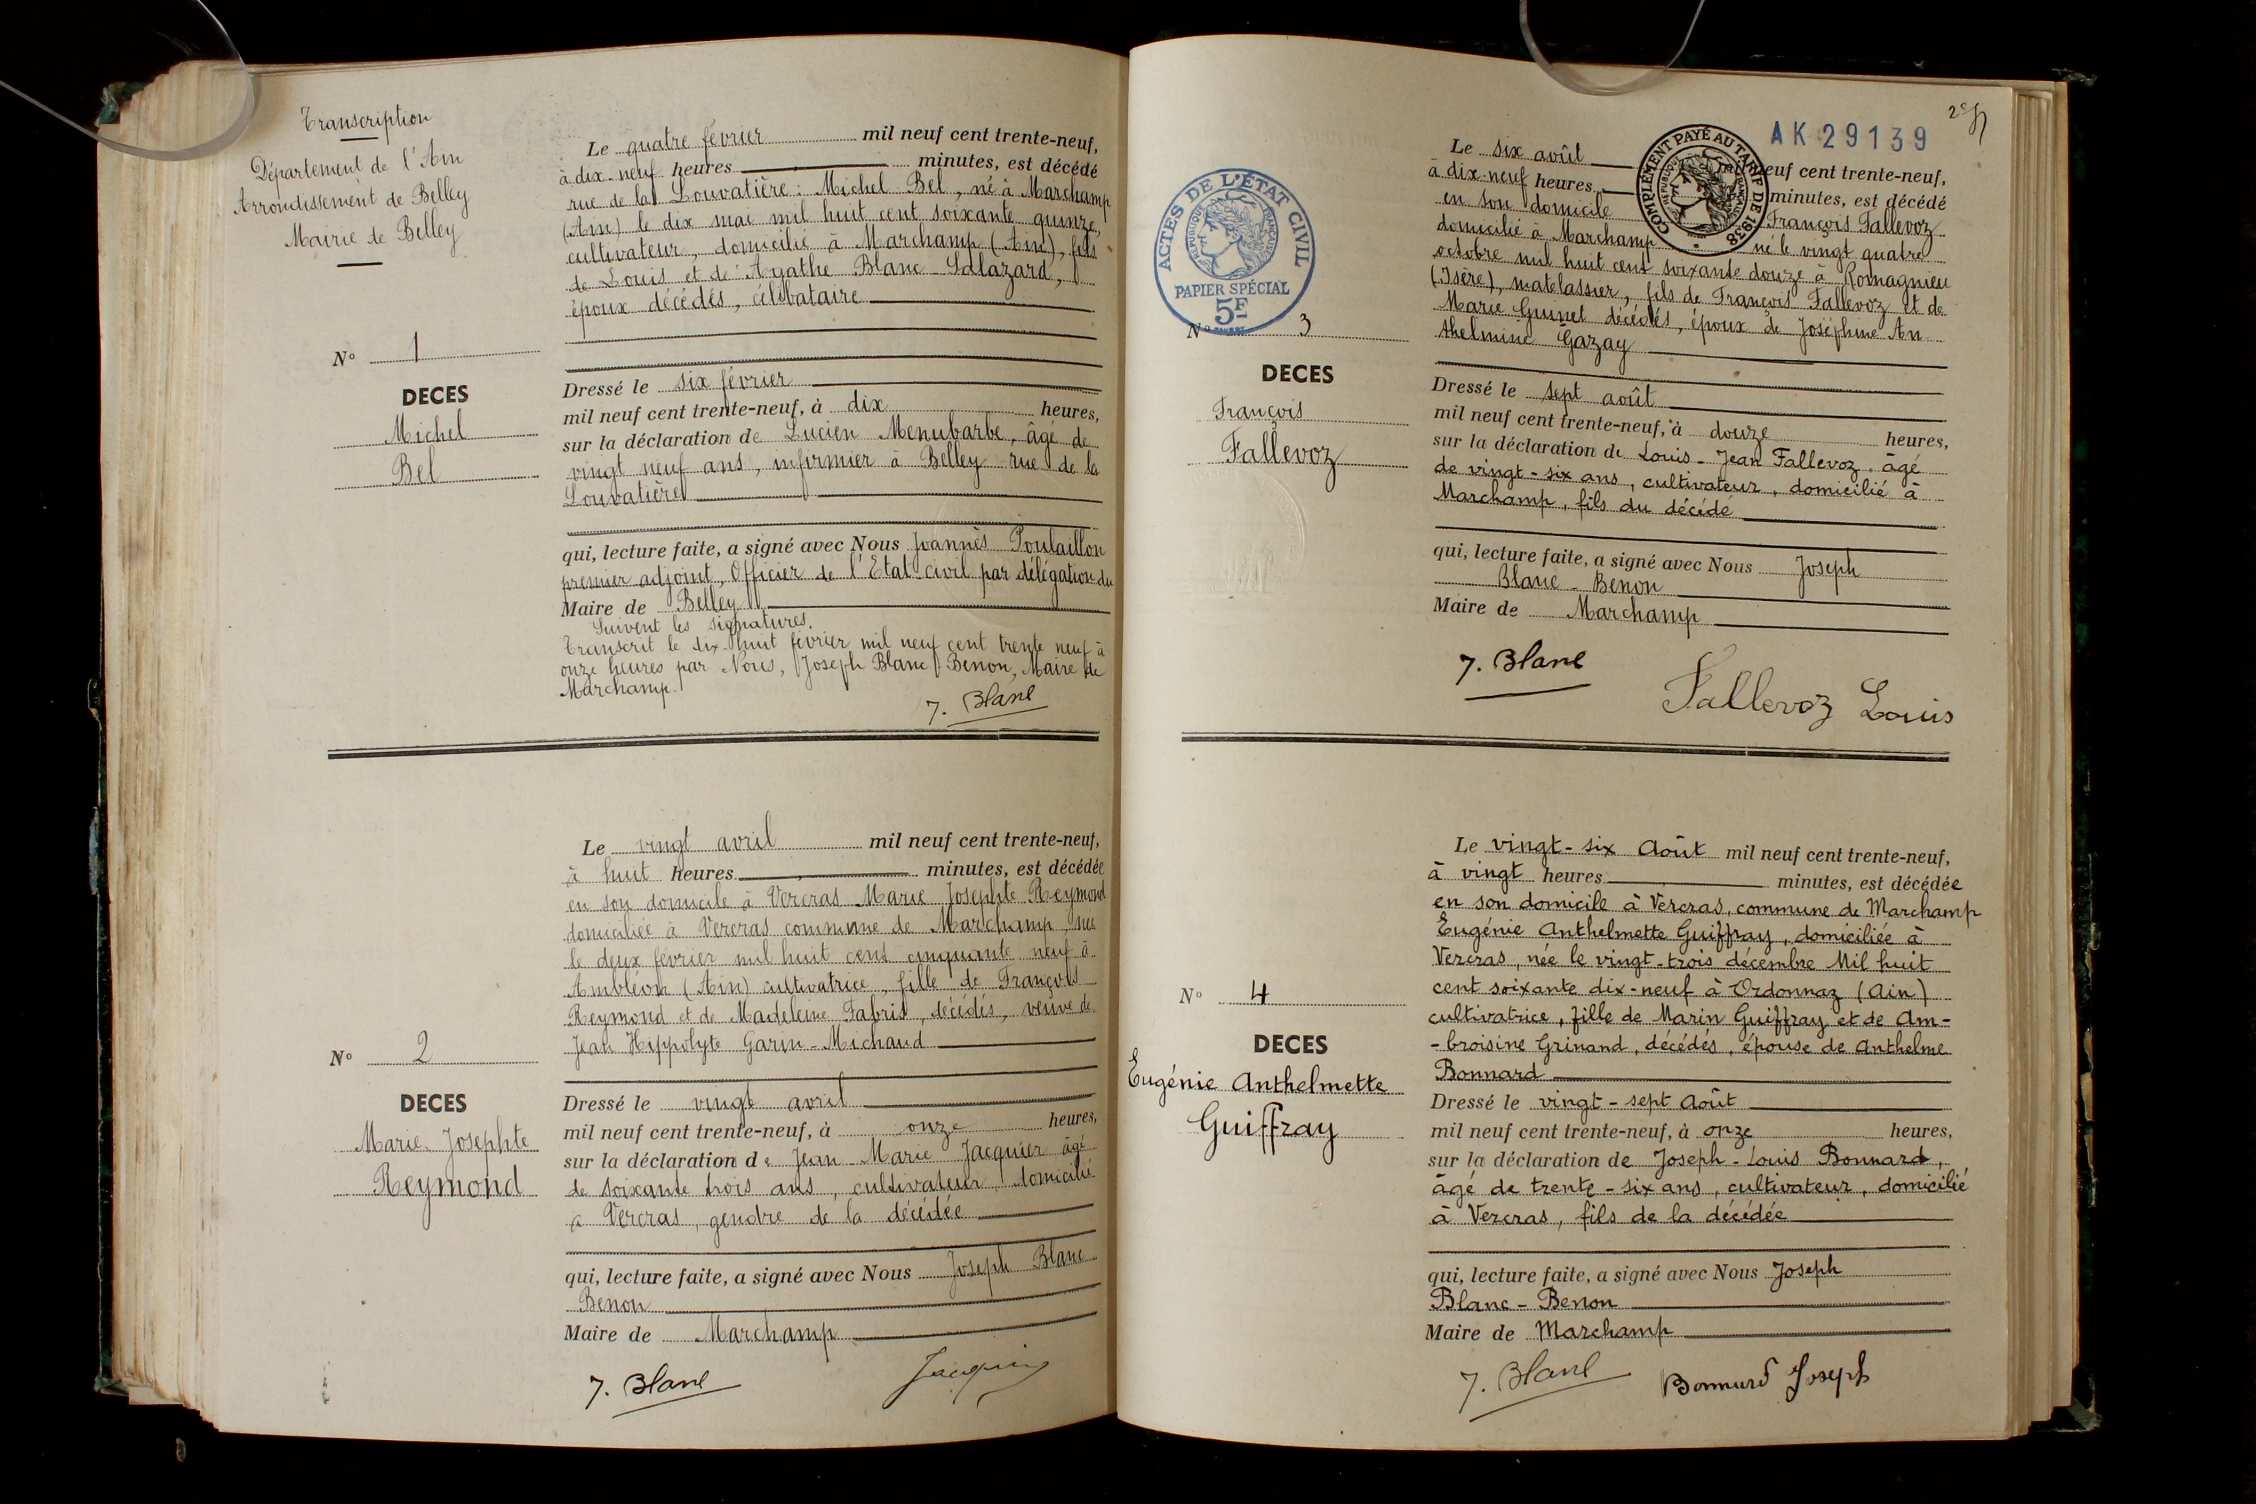 Transcription
Département de l'Ain
Arrondissement de Belley
Mairie de Belley
N° 1
DECES
Michel
Bel
Le quatre février mil neuf cent trente-neuf,
à dix-neuf heures minutes, est décédé
rue de la Louvatière : Michel Bel, né à Marchamp
(Ain) le dix mai mil huit cent soixante quinze,
cultivateur, domicilié à Marchamp (Ain), fils
de Louis et de Agathe Blanc-Salazard,
époux décédés, célibataire
Dressé le six février
mil neuf cent trente-neuf, à dix heures,
sur la déclaration de Lucien Menubarbe, âgé de
vingt neuf ans, infirmier à Belley rue de la
Louvatière
qui, lecture faite, a signé avec Nous Joannès Poulaillon
premier adjoint, Officier de l'Etat-civil par délégation du
Maire de Belley
Suivent les signatures.
Transcrit le dix-huit février mil neuf cent trente neuf à
onze heures par Nous, Joseph Blanc-Benon, Maire de
Marchamp.
J. Blanc
N° 2
DECES
Marie Josephte
Reymond
Le vingt avril mil neuf cent trente-neuf,
à huit heures minutes, est décédée
en son domicile à Vercras Marie Josephte Reymond
domiciliée à Vercras commune de Marchamp, née
le deux février mil huit cent cinquante neuf à
Ambléon (Ain) cultivatrice, fille de François
Reymond et de Madeleine Fabris, décédés, veuve de
Jean Hippolyte Garin-Michaud
Dressé le vingt avril
mil neuf cent trente-neuf, à onze heures,
sur la déclaration de Jean-Marie Jacquier âgé
de soixante trois ans, cultivateur, domicilié
à Vercras, gendre de la décédée
qui, lecture faite, a signé avec Nous Joseph Blanc
Benon
Maire de Marchamp
J. Blanc Jacquier
AK 29139
COMPLÉMENT PAYÉ AU TARIF DE 1938
RÉPUBLIQUE FRANÇAISE
ACTES DE L'ÉTAT CIVIL
RÉPUBLIQUE FRANÇAISE
PAPIER SPÉCIAL
5F
N° 3
DECES
François
Fallevoz
Le six août mil neuf cent trente-neuf,
à dix-neuf heures minutes, est décédé
en son domicile François Fallevoz
domicilié à Marchamp né le vingt quatre
octobre mil huit cent soixante douze à Romagnieu
(Isère), matelassier, fils de François Fallevoz et de
Marie Guinet décédés, époux de Joséphine An
thelmine Gazay
Dressé le sept août
mil neuf cent trente-neuf, à douze heures,
sur la déclaration de Louis-Jean Fallevoz. âgé
de vingt-six ans, cultivateur, domicilié à
Marchamp, fils du décédé
qui, lecture faite, a signé avec Nous Joseph
Blanc-Benon
Maire de Marchamp
J. Blanc
Fallevoz Louis
N° 4
DECES
Eugénie Anthelmette
Guiffray
Le vingt-six Août mil neuf cent trente-neuf,
à vingt heures minutes, est décédée
en son domicile à Vercras, commune de Marchamp
Eugénie Anthelmette Guiffray, domiciliée à
Vercras, née le vingt-trois décembre Mil huit
cent soixante dix-neuf à Ordonnaz (Ain)
cultivatrice, fille de Marin Guiffray et de Am-
-broisine Grinand, décédés, épouse de Anthelme
Bonnard
Dressé le vingt-sept Août
mil neuf cent trente-neuf, à onze heures,
sur la déclaration de Joseph-Louis Bonnard,
âgé de trente-six ans, cultivateur, domicilié
à Vercras, fils de la décédée
qui, lecture faite, a signé avec Nous Joseph
Blanc-Benon
Maire de Marchamp
J. Blanc Bonnard Joseph